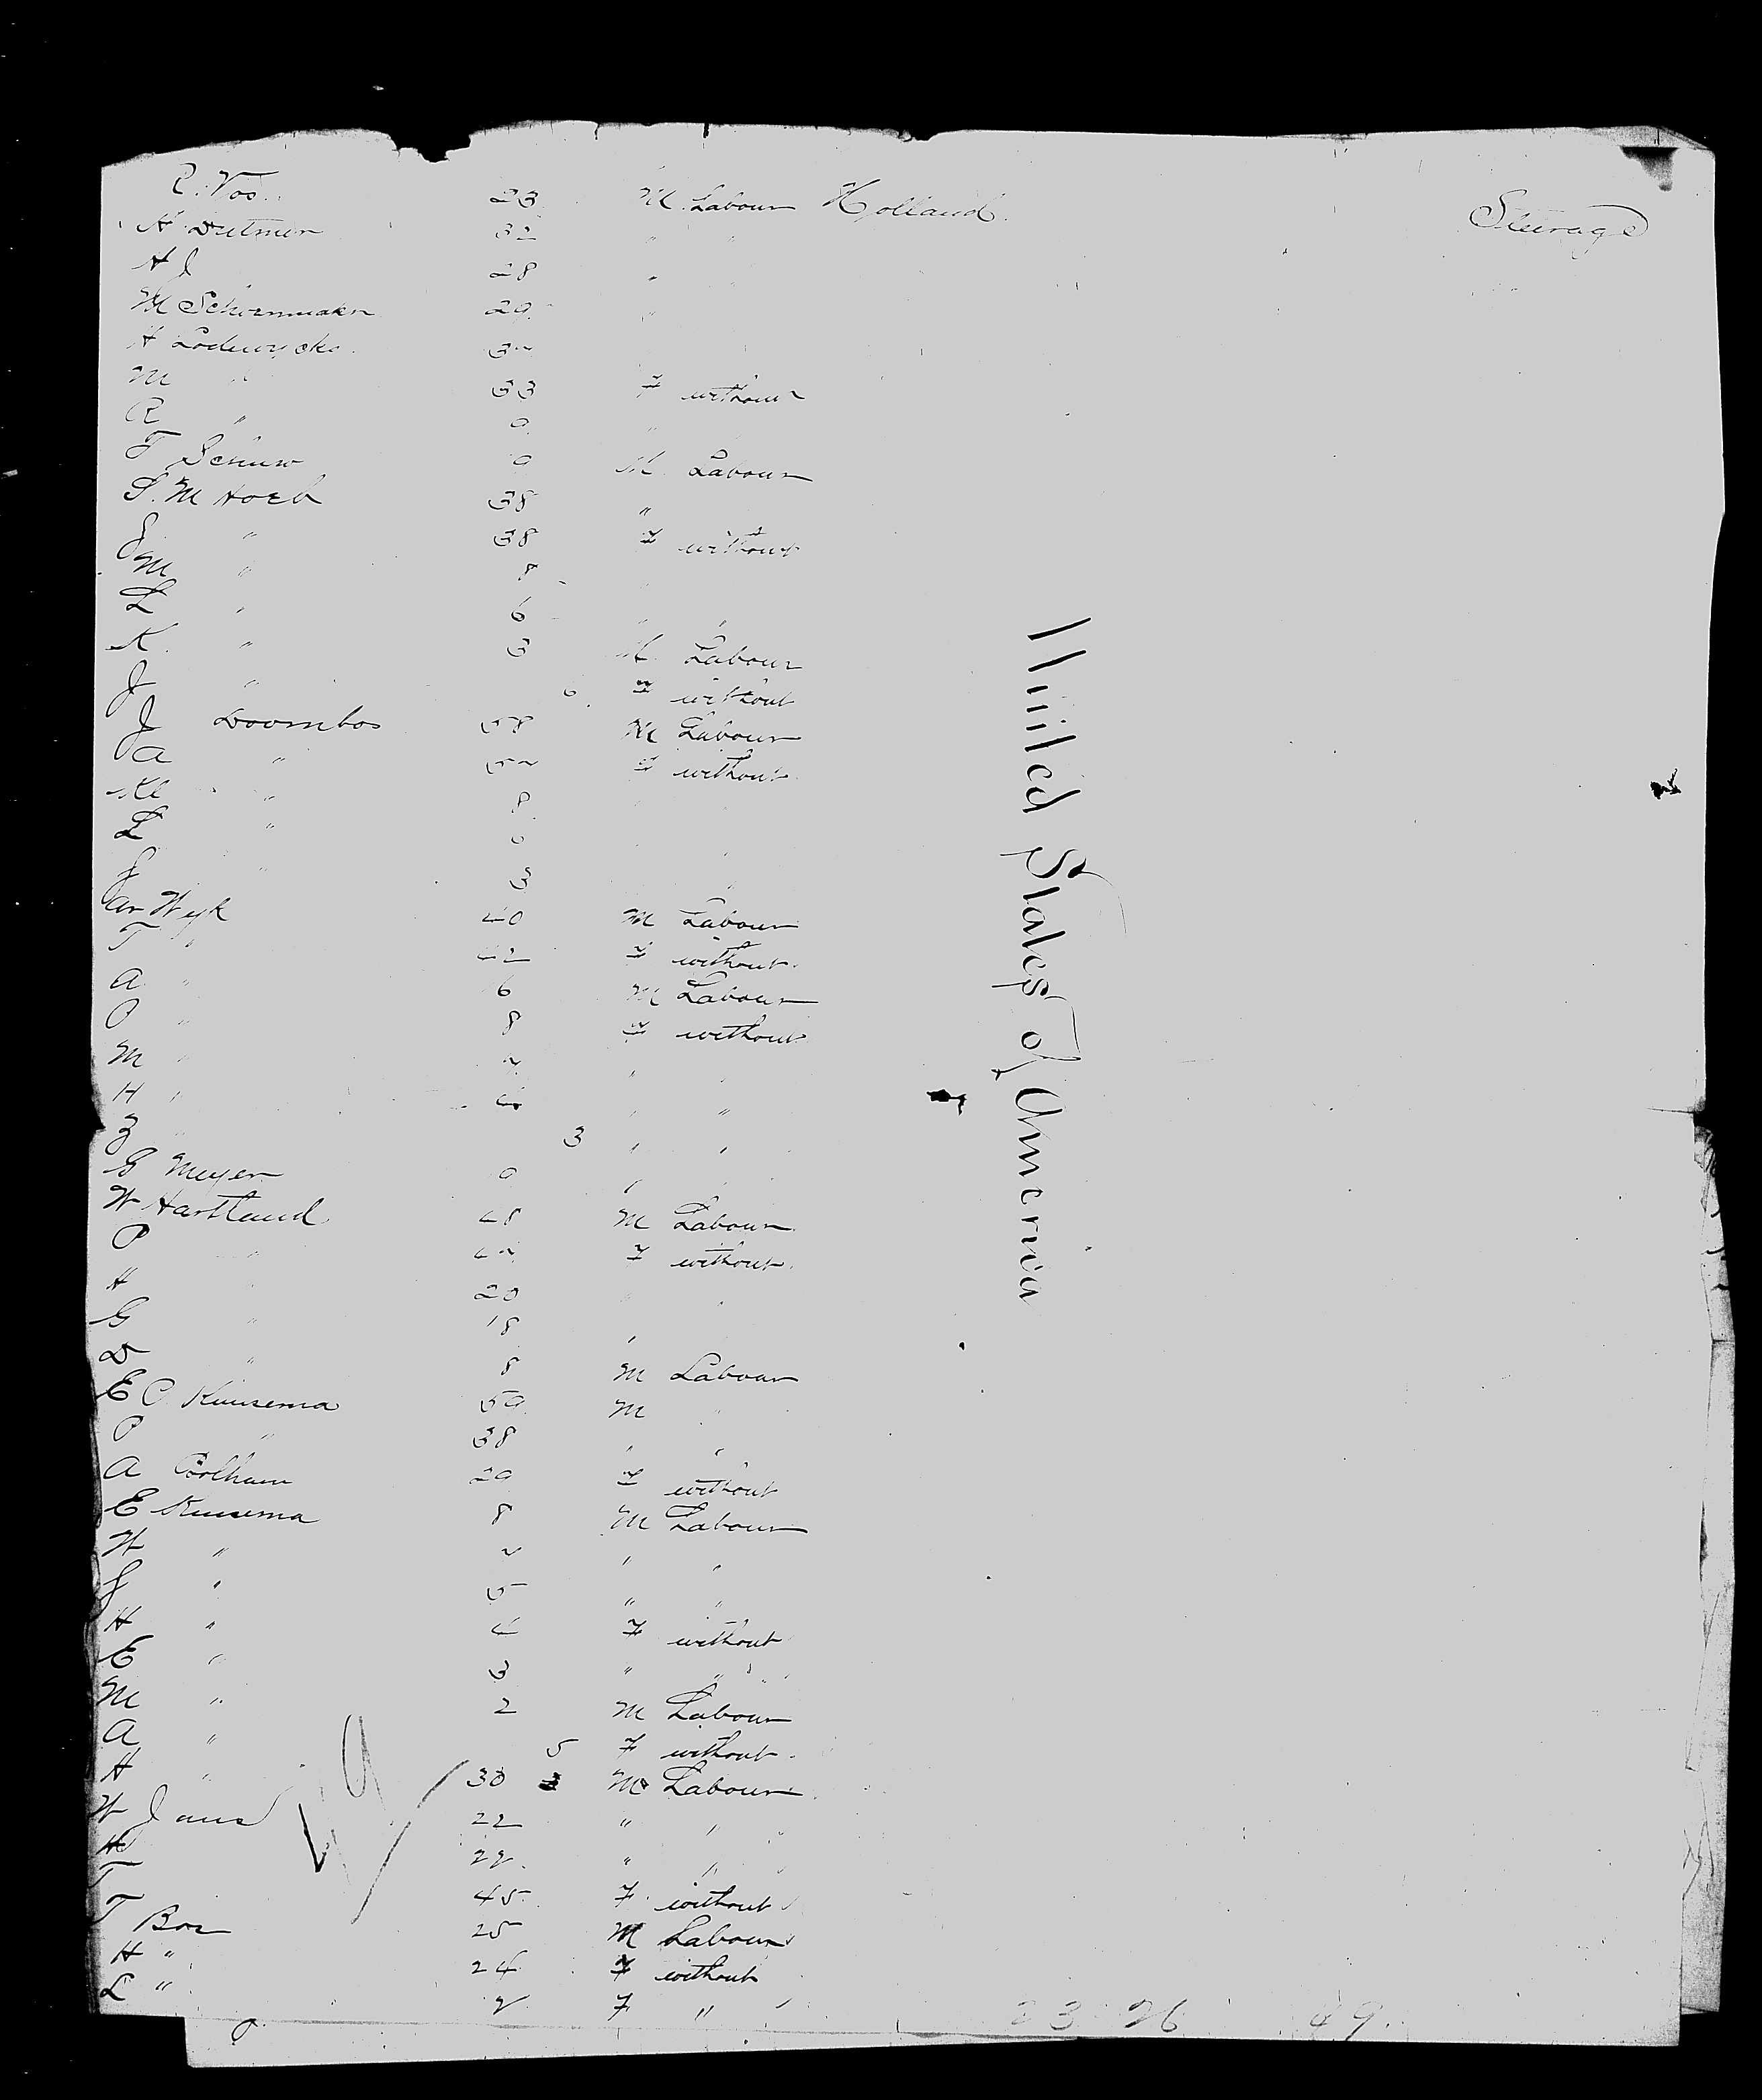 R. Vos 23 M. Labour Holland. Steerage
H Dutmer 32 " "
H J 28 "
M Schoenmaker 29 "
H Lodewycks 37
M " 33 F without
R " 9 "
T Schuur 9 M Labour
S. M Hoeb 38 "
J " 38 F without
M " 8
L " 6 " "
K " 3 M. Labour
J " 6 F without
J Doornbos 58 M Labour
A " 57 F without
Kl " 8
L " 6
J " 3
Ar Wyk 40 M Labour
T " 42 F without
A " 6 M Labour
P " 8 F without
M " 7 "
H " 4 " "
Z " 3 " "
G Meyer 9 "
W Hartland 48 M Labour
P " 47 F without
H 20
G " 18 "
D " 8 M Labour
E C Kuusema 59 M
P " 38 " "
A 29 F without
E Kuusema 8 M Labour
W " 7 " "
J " 5 " "
H " 4 F without
E " 3 " "
M " 2 M Labour
A " 5 F without
H " 30 M Labour
W Jans 22 " "
H 22 " "
T 45 F without
T Bos 25 M Labour
H " 24 F without
L " 2 F "
United States of America
23 26 49